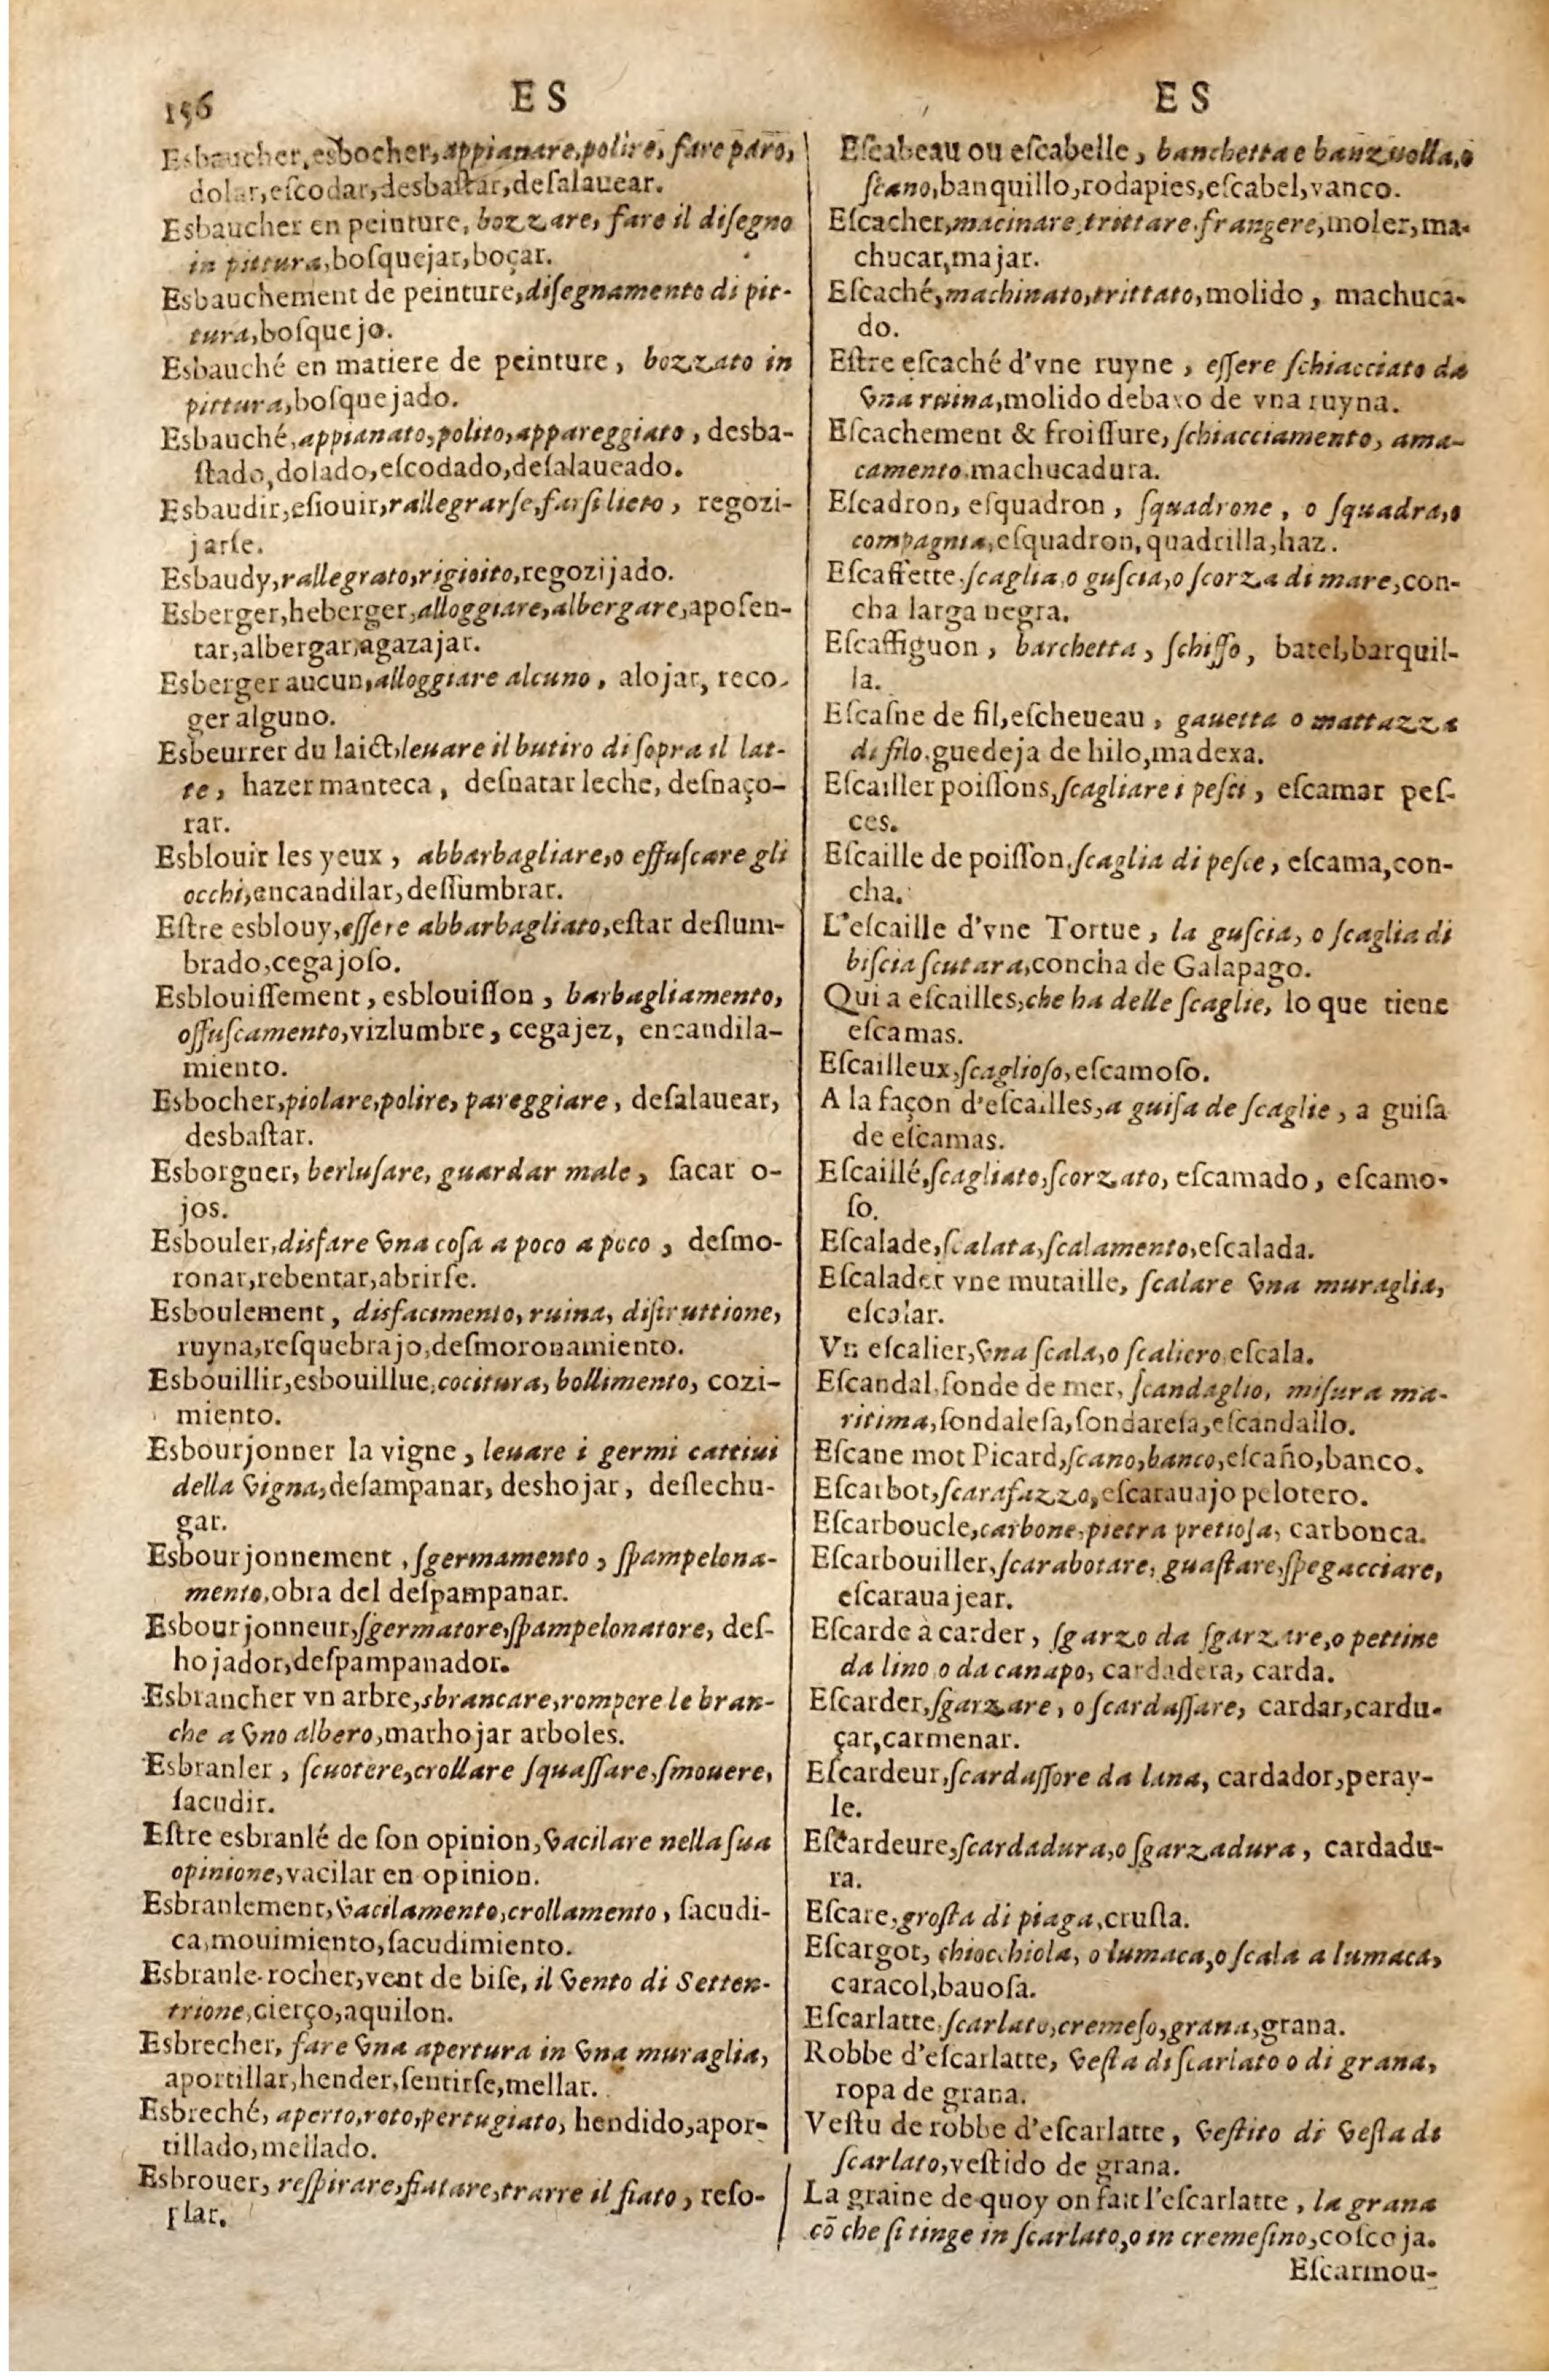 156
ES
Esbaucher, esbocher, appianare, polire, fare paro,
dolar, eſcodar, desbaſtar, deſalauear.
Esbaucher en peinture, bozzare, fare il diſegno
in pittura, boſquejar, boçar.
Esbauchement de peinture, diſegnamento di pit-
tura, boſquejo.
Esbauché en matiere de peinture, bozzato in
pittura, boſquejado.
Esbauché, appianato, polito, appareggiato, desba-
ſtado, dolado, eſcodado, deſalaueado.
Esbaudir, eſiouir, rallegrarſe, farſi lieto, regozi-
jarſe.
Esbaudy, rallegrato, rigioito, regozijado.
Esberger, heberger, alloggiare, albergare, apoſen-
tar, albergar, agazajar.
Esberger aucun, alloggiare alcuno, alojar, reco-
ger alguno.
Esbeurrer du laict, leuare il butiro di ſopra il lat-
te, hazer manteca, deſnatar leche, deſnaço-
rar.
Esblouir les yeux, abbarbagliare, o effuſcare gli
occhi, encandilar, deſſumbrar.
Eſtre esblouy, eſſere abbarbagliato, eſtar deſlum-
brado, cegajoſo.
Esblouiſſement, esblouiſſon, barbagliamento,
offuſcamento, vizlumbre, cegajez, encandila-
miento.
Esbocher, piolare, polire, pareggiare, deſalauear,
desbaſtar.
Esborgner, berluſare, guardar male, ſacar o-
jos.
Esbouler, disfare vna coſa a poco a poco, deſmo-
ronar, rebentar, abrirſe.
Esboulement, disfacimento, ruina, diſtruttione,
ruyna, reſquebrajo, deſmoronamiento.
Esbouillir, esbouillue, cocitura, bollimento, cozi-
miento.
Esbourjonner la vigne, leuare i germi cattiui
della vigna, deſampanar, deshojar, deſlechu-
gar.
Esbourjonnement, ſgermamento, ſpampelona-
mento, obra del deſpampanar.
Esbourjonneur, ſgermatore, ſpampelonatore, deſ-
hojador, deſpampanador.
Esbrancher vn arbre, sbrancare, rompere le bran-
che a vno albero, marhojar arboles.
Esbranler, ſcuotere, crollare ſquaſſare, ſmouere,
ſacudir.
Eſtre esbranlé de ſon opinion, vacilare nella ſua
opinione, vacilar en opinion.
Esbranlement, vacilamento, crollamento, ſacudi-
ca, mouimiento, ſacudimiento.
Esbranle-rocher, vent de biſe, il vento di Setten-
trione, cierço, aquilon.
Esbrecher, fare vna apertura in vna muraglia,
aportillar, hender, ſentirſe, mellar.
Esbreché, aperto, roto, pertugiato, hendido, apor-
tillado, mellado.
Esbrouer, reſpirare, fiatare, trarre il fiato, reſo-
plar.
ES
Eſcabeau ou eſcabelle, banchetta e banzuolla, o
ſcano, banquillo, rodapies, eſcabel, vanco.
Eſcacher, macinare, trittare, frangere, moler, ma-
chucar, majar.
Eſcaché, machinato, trittato, molido, machuca-
do.
Eſtre eſcaché d'vne ruyne, eſſere ſchiacciato da
vna ruina, molido debaxo de vna ruyna.
Eſcachement & froiſſure, ſchiacciamento, ama-
camento, machucadura.
Eſcadron, eſquadron, ſquadrone, o ſquadra, o
compagnia, eſquadron, quadrilla, haz.
Eſcaffette, ſcaglia, o guſcia, o ſcorza di mare, con-
cha larga negra.
Eſcaffiguon, barchetta, ſchiffo, batel, barquil-
la.
Eſcaſne de fil, eſcheueau, gauetta o mattazza
di filo, guedeja de hilo, madexa.
Eſcailler poiſſons, ſcagliare i peſci, eſcamar peſ-
ces.
Eſcaille de poiſſon, ſcaglia di peſce, eſcama, con-
cha.
L'eſcaille d'vne Tortue, la guſcia, o ſcaglia di
biſcia ſcutara, concha de Galapago.
Qui a eſcailles, che ha delle ſcaglie, lo que tiene
eſcamas.
Eſcailleux, ſcaglioſo, eſcamoſo.
A la façon d'eſcailles, a guiſa de ſcaglie, a guiſa
de eſcamas.
Eſcaillé, ſcagliato, ſcorzato, eſcamado, eſcamo-
ſo.
Eſcalade, ſcalata, ſcalamento, eſcalada.
Eſcalader vne muraille, ſcalare vna muraglia,
eſcalar.
Vn eſcalier, vna ſcala, o ſcaliero, eſcala.
Eſcandal, ſonde de mer, ſcandaglio, miſura ma-
ritima, ſondaleſa, ſondareſa, eſcandallo.
Eſcane mot Picard, ſcano, banco, eſcaño, banco.
Eſcarbot, ſcarafazzo, eſcarauajo pelotero.
Eſcarboucle, carbone, pietra pretioſa, carbonca.
Eſcarbouiller, ſcarabotare, guaſtare, ſpegacciare,
eſcarauajear.
Eſcarde à carder, ſgarzo da ſgarzare, o pettine
da lino o da canapo, cardadera, carda.
Eſcarder, ſgarzare, o ſcardaſſare, cardar, cardu-
çar, carmenar.
Eſcardeur, ſcardaſſore da lana, cardador, peray-
le.
Eſcardeure, ſcardadura, o ſgarzadura, cardadu-
ra.
Eſcare, groſta di piaga, cruſta.
Eſcargot, chiocchiola, o lumaca, o ſcala a lumaca,
caracol, bauoſa.
Eſcarlatte, ſcarlato, cremeſo, grana, grana.
Robbe d'eſcarlatte, veſta di ſcarlato o di grana,
ropa de grana.
Veſtu de robbe d'eſcarlatte, veſtito di veſta di
ſcarlato, veſtido de grana.
La graine de quoy on fait l'eſcarlatte, la grana
cō che ſi tinge in ſcarlato, o in cremeſino, coſcoja.
Eſcarmou-